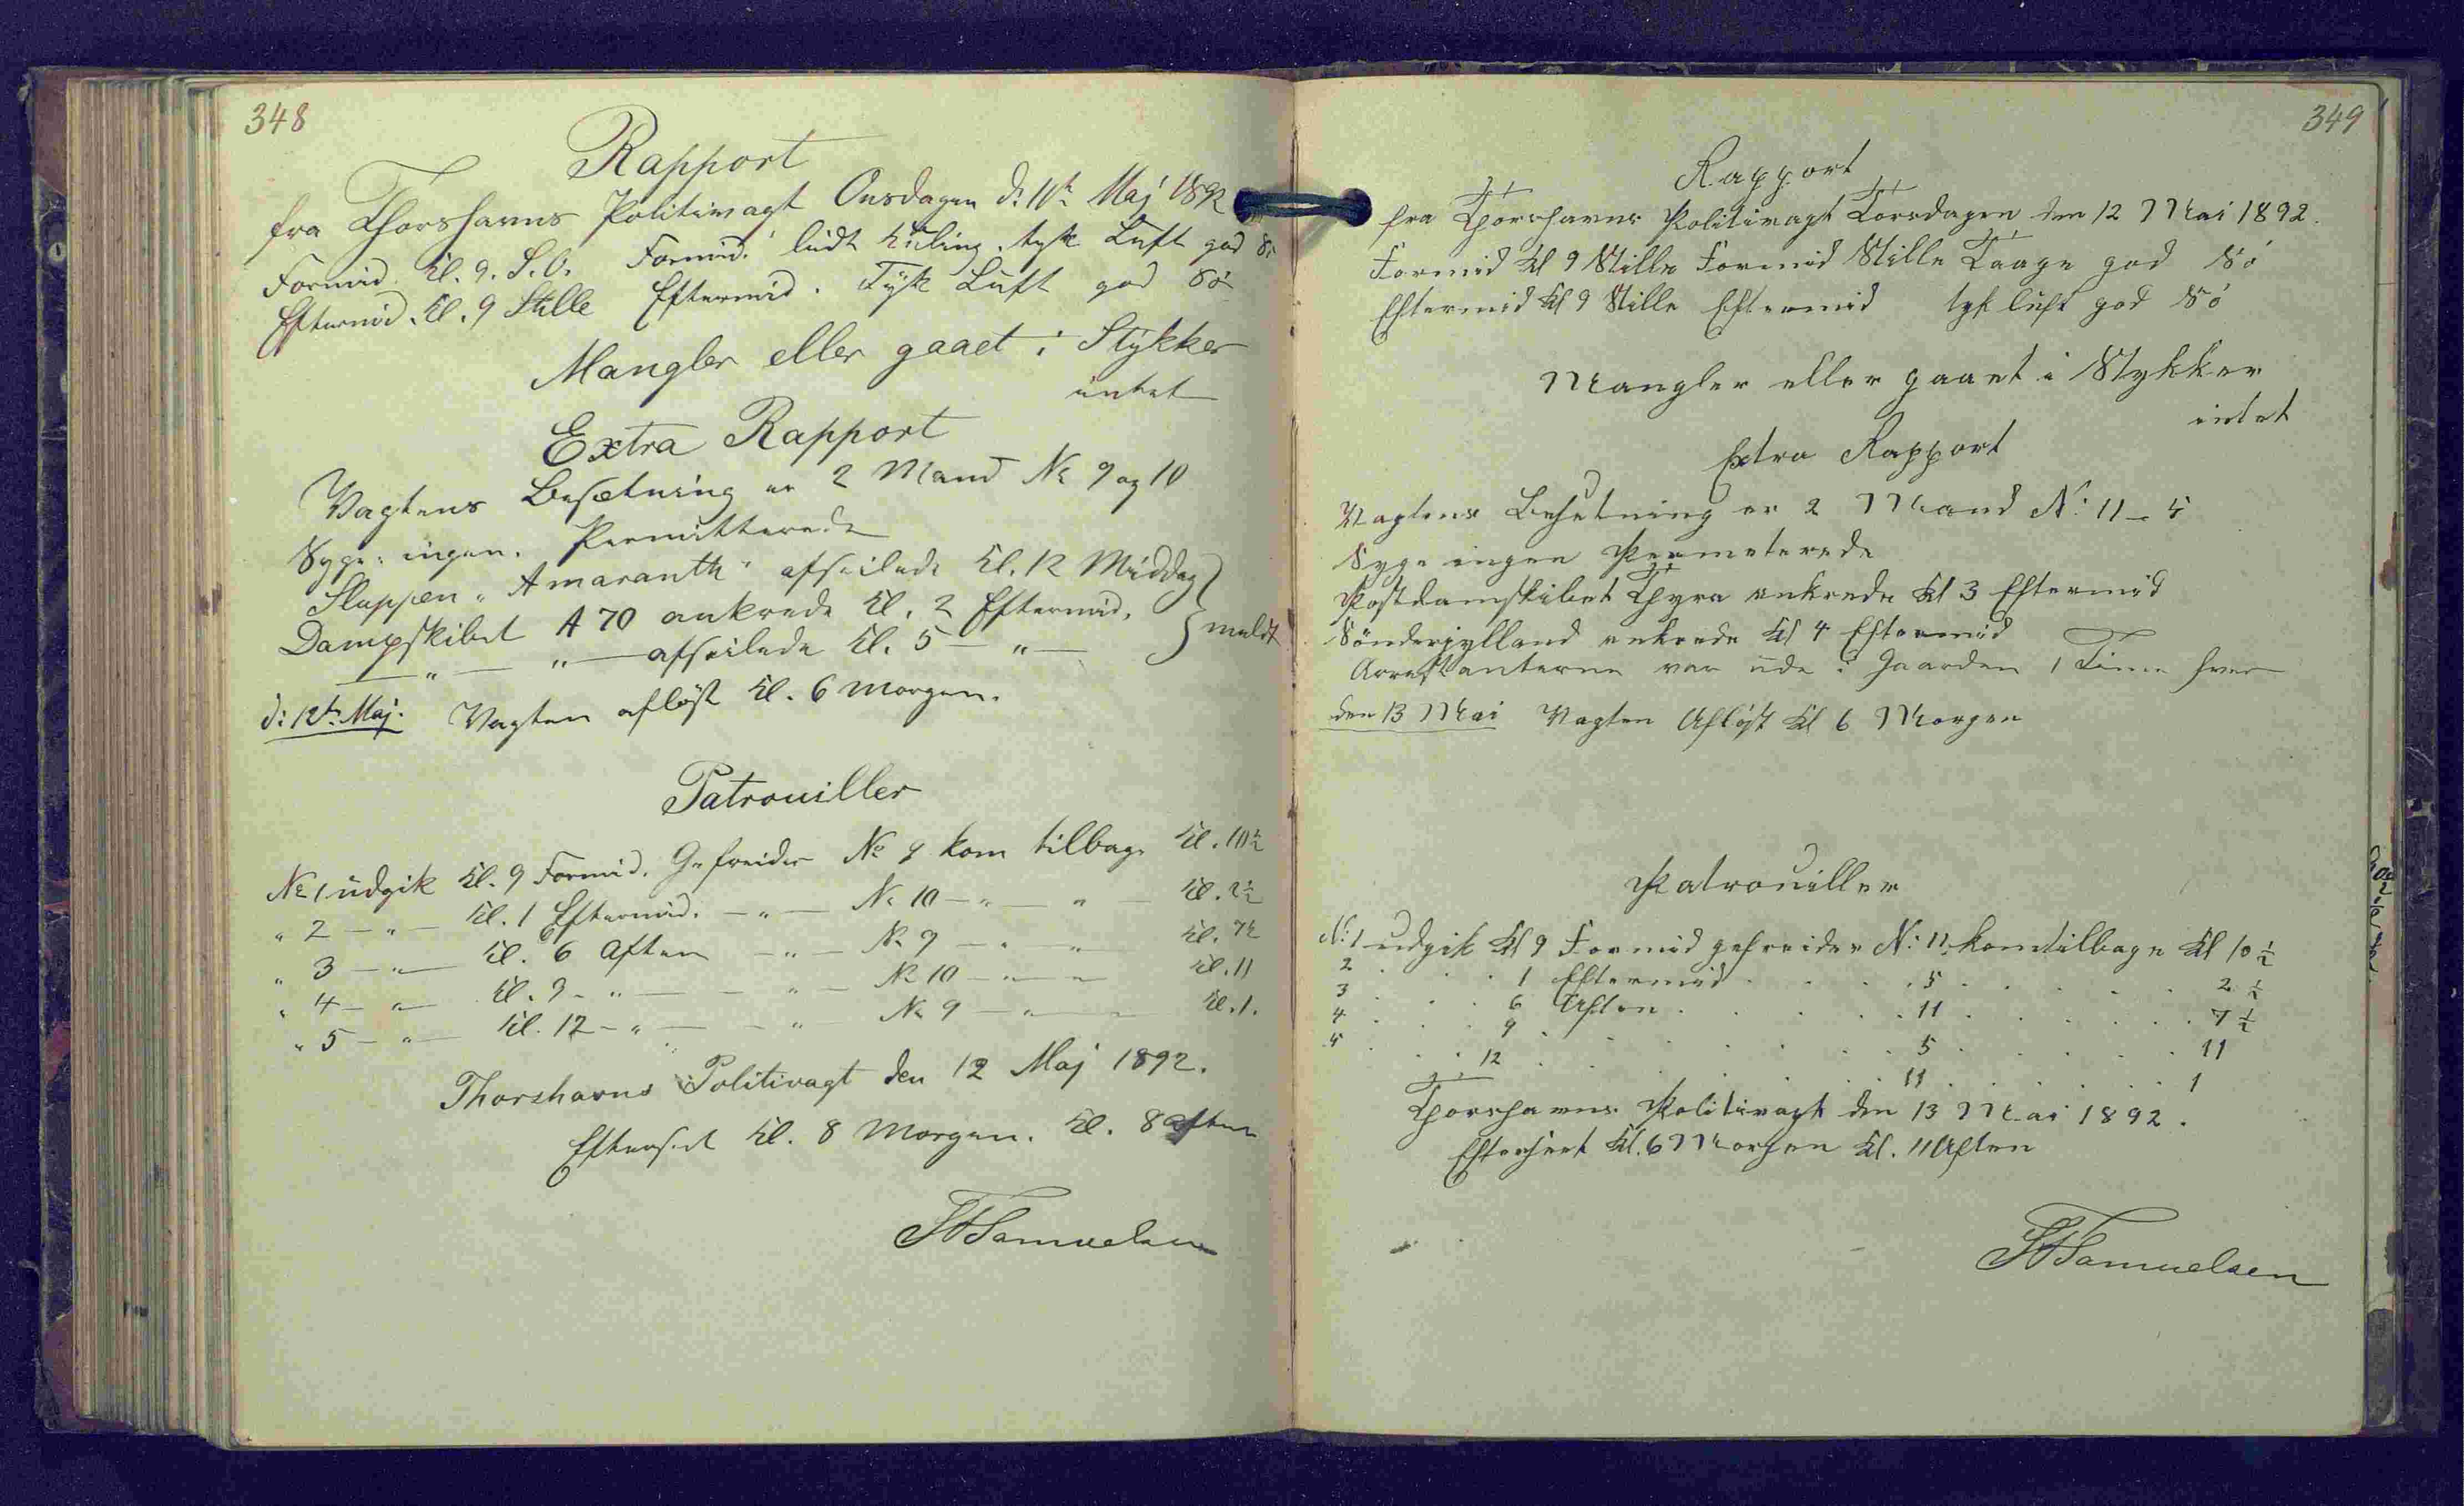 348
Rapport
fra Thorshavns Politivagt Onsdagen d: 11te Maj 1892
Formid. Kl. 9. S.O. Formid. lidt Kuling. tyk Luft god Sö
Eftermid. Kl. 9 Stille Eftermid. Tyk Luft god Sö
Mangler eller gaaet i Stykker
intet
Extra Rapport
Vagtens Besætning er 2 Mand No 9 og 10
Syge: ingen. Permitterede
Sluppen "Amaranth" afseilede Kl. 12 Middag
Dampskibet A 70 ankrede Kl. 2 Eftermid. } meldt
— " — " — afseilede Kl. 5 — " —
d: 12te Maj. Vagten afløst Kl. 6 Morgen.
Patrouiller
No 1 udgik Kl. 9 Formid. Gefreider No 9 kom tilbage Kl. 10½
" 2 — " — Kl. 1 Eftermid. — " — No 10 — " — " — Kl. 2½
" 3 — " — Kl. 6 Aften — " — No 9 — " — " Kl. 7½
" 4 — " — Kl. 9 — " — — " — No 10 — " — " Kl. 11
" 5 — " — Kl. 12 — " — — " No 9 — " — Kl. 1.
Thorshavns Politivagt den 12 Maj 1892.
Efterset Kl. 8 Morgen. Kl. 8 Aften
Samuelsen
349
Rapport
fra Thorshavns Politivagt Torsdagen den 12 Mai 1892.
Formid Kl 9 Stille Formid Stille Taage god Sö
Eftermid Kl 9 Stille Eftermid tyk luft god Sö
Mangler eller gaaet i Stykker
intet
Extra Rapport
Vagtens Besetning er 2 Mand N: 11 – 5
Syge ingen Permeterede
Postdamskibet Thyra ankrede Kl 3 Eftermid
Sönderjylland ankrede Kl 4 Eftermid
Arrestanterne var ude i Gaarden 1 Time hver
den 13 Mai Vagten Afløst Kl 6 Morgen
Patrouiller
N: 1 udgik Kl 9 Formid gefreider N: 11 kom tilbage Kl 10 ½
2 . . . 1 Eftermid . . . 5 . . . . 2 ½
3 . . . 6 Aften . . . . 11 . . . . 7 ½
4 . . . 9 . . . . . 5 . . . . 11
5 . . . 12 . . . . . 11 . . . . 1
Thorshavns Politivagt den 13 Mai 1892.
Efterseet Kl. 6 Morgen Kl. 11 Aften
Samuelsen